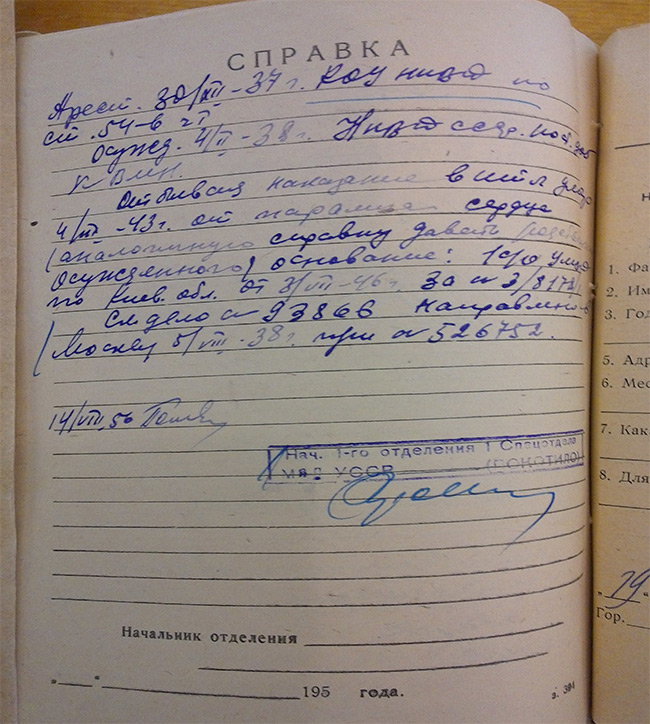 СПРАВКА
Арест. 30/XII-37 г. КОУ НКВД по
ст. 54-6 ч I
Осужд. 4/II-38 г. НКВД СССР
к ВМН.
Отбывая наказание в ИТЛ умер
4/ -43 г. от паралича сердца
(аналогичную справку давать
осужденного) основание: 1 с/о
по Киев. обл. от 3/VII-46 г. за № 3/
См дело № 93866 направлено в
Москву 5/VIII-38 г. при № 526752.
14/VIII 56
Нач. 1-го отделения 1 Спецотдела
МВД УССР (СОКОТИЛО)
Начальник отделения
"___" ___ 195 года.
з. 304
1. Фа
2. Им
3. Год
5. Адр
6. Мес
7. Кака
8. Для
"19"
Гор.